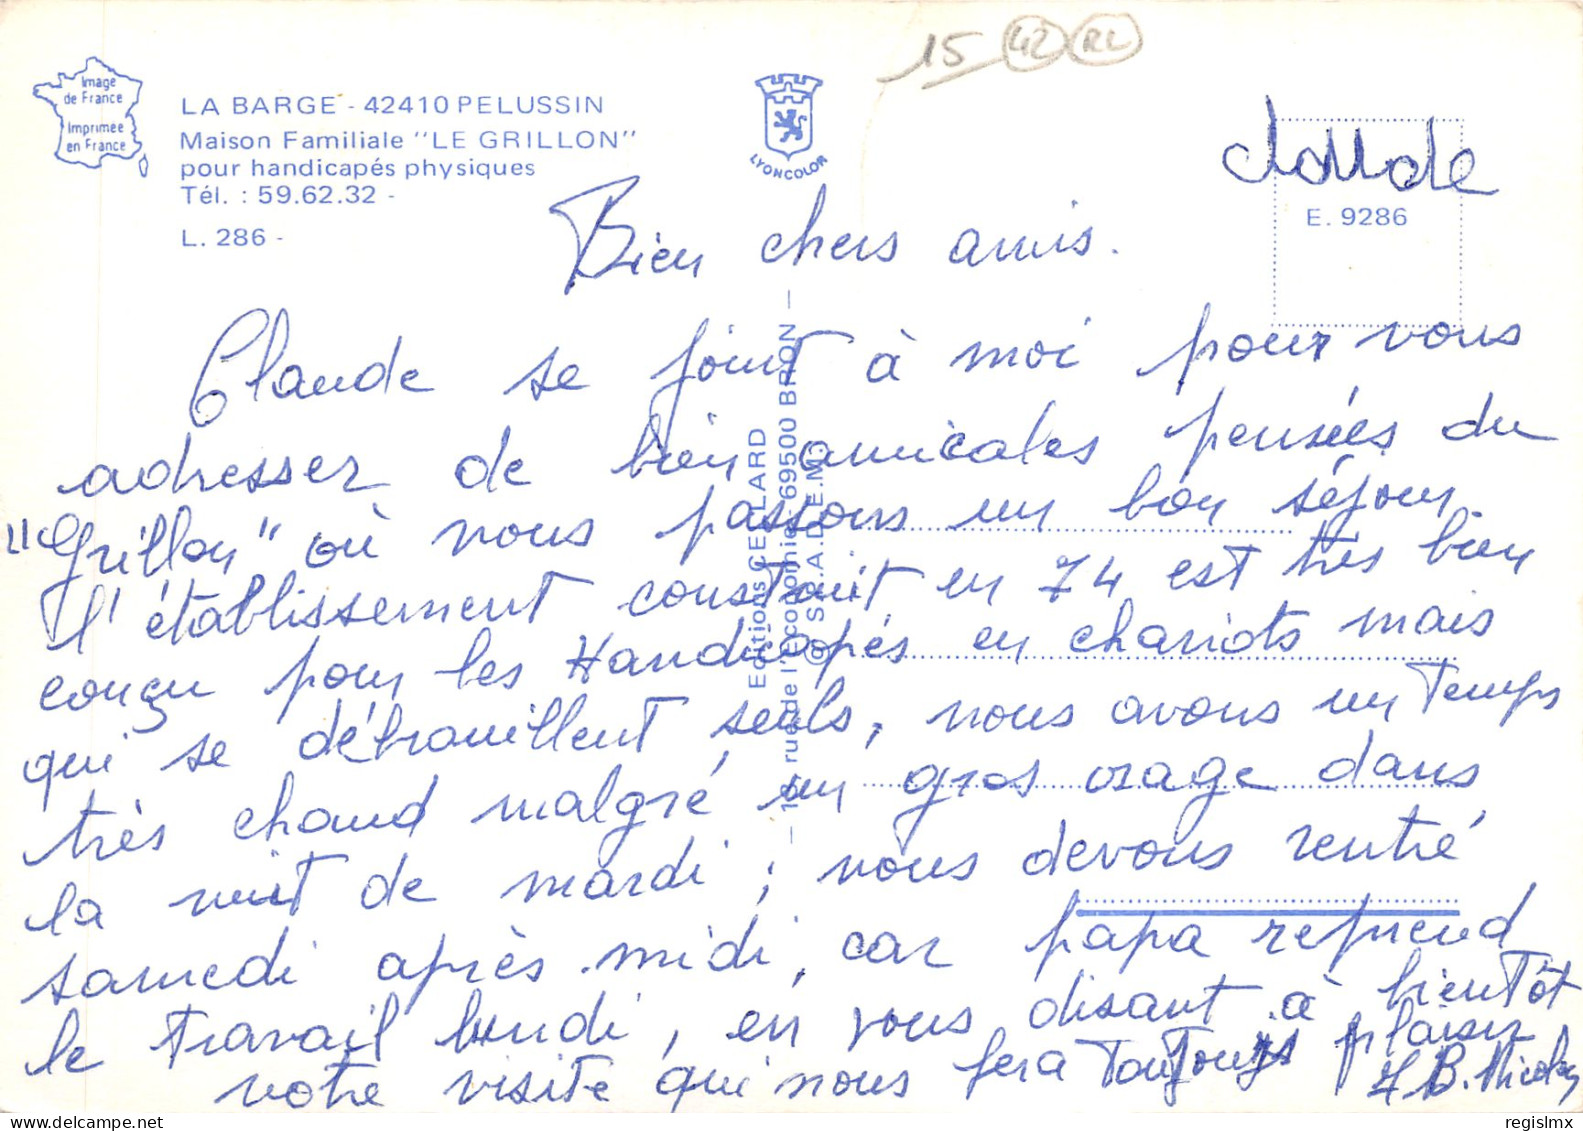 15 42 RL
Image
de France
Imprimée
en France
LA BARGE - 42410 PELUSSIN
Maison Familiale "LE GRILLON"
pour handicapés physiques
Tél. : 59.62.32 -
L. 286 -
LYONCOLOR
Claude
E. 9286
Bien chers amis.
Claude se joint à moi pour vous
adresser de bien amicales pensées du
"Grillon" où nous passons un bon séjour
l'établissement construit en 74 est très bien
conçu pour les Handicapés en chariots mais
qui se débrouillent seuls, nous avons un temps
très chaud malgré un gros orage dans
la nuit de mardi ; nous devons rentré
samedi après-midi, car papa reprend
le travail lundi, en vous disant à bientôt
votre visite qui nous fera toujours plaisir
B. Nicolas
Editions CELLARD
rue de l'Economie - 69500 BRON -
regislmx